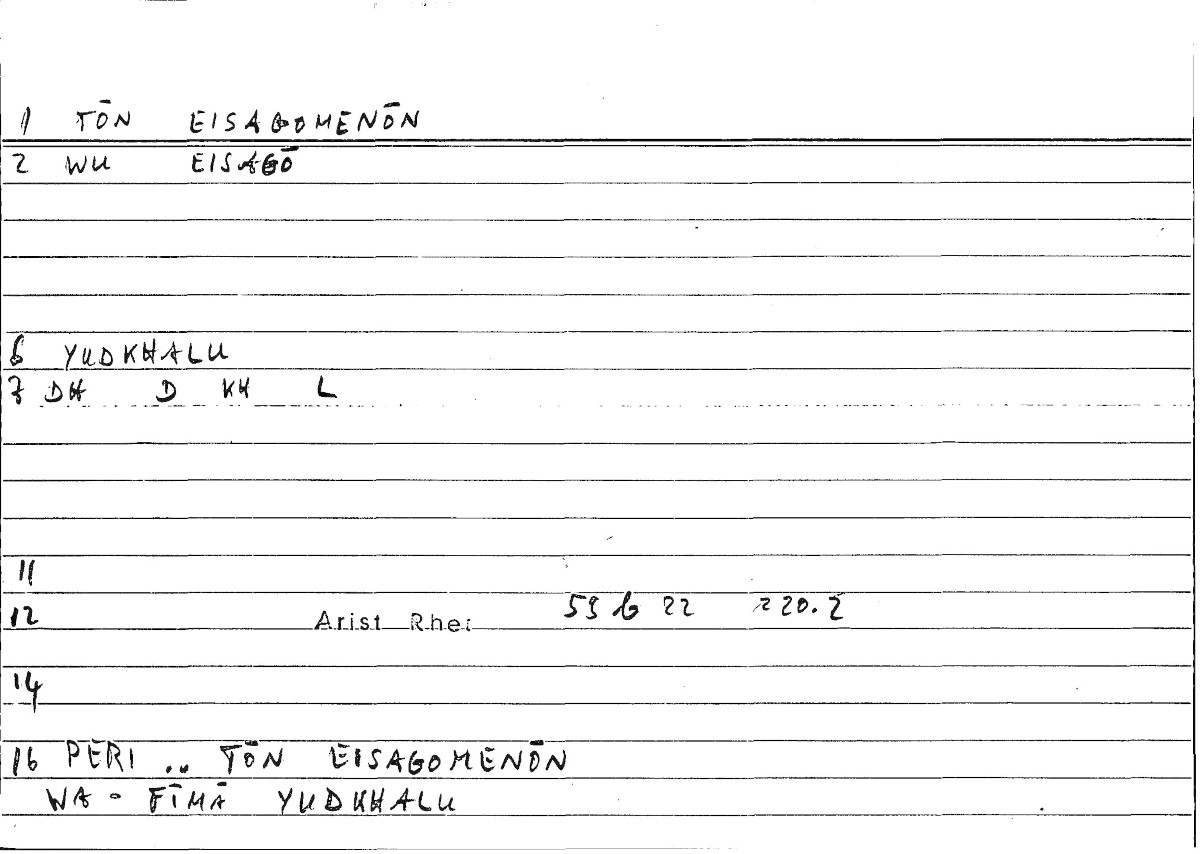 1 TŌN EISAGOMENŌN
2 WU EISAGŌ
6 YUDKHALU
7 DH D KH L
11
12 Arist Rhet 59 b 22 220.2
14
16 PERI .. TŌN EISAGOMENŌN
WA - FĪMĀ YUDKHALU